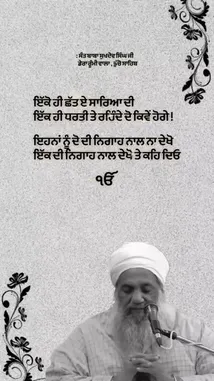 : ਸੰਤ ਬਾਬਾ ਸੁਖਦੇਵ ਸਿੰਘ ਜੀ
ਡੇਰਾ ਰੂੰਮੀ ਵਾਲਾ , ਭੁੱਚੋ ਸਾਹਿਬ
ਇੱਕੋ ਹੀ ਛੱਤ ਏ ਸਾਰਿਆ ਦੀ
ਇੱਕ ਹੀ ਧਰਤੀ ਤੇ ਰਹਿੰਦੇ ਦੋ ਕਿਵੇਂ ਹੋਗੇ !
ਇਹਨਾਂ ਨੂੰ ਦੋ ਦੀ ਨਿਗਾਹ ਨਾਲ ਨਾ ਦੇਖੋ
ਇੱਕ ਦੀ ਨਿਗਾਹ ਨਾਲ ਦੇਖੋ ਤੇ ਕਹਿ ਦਿਓ
ੴ